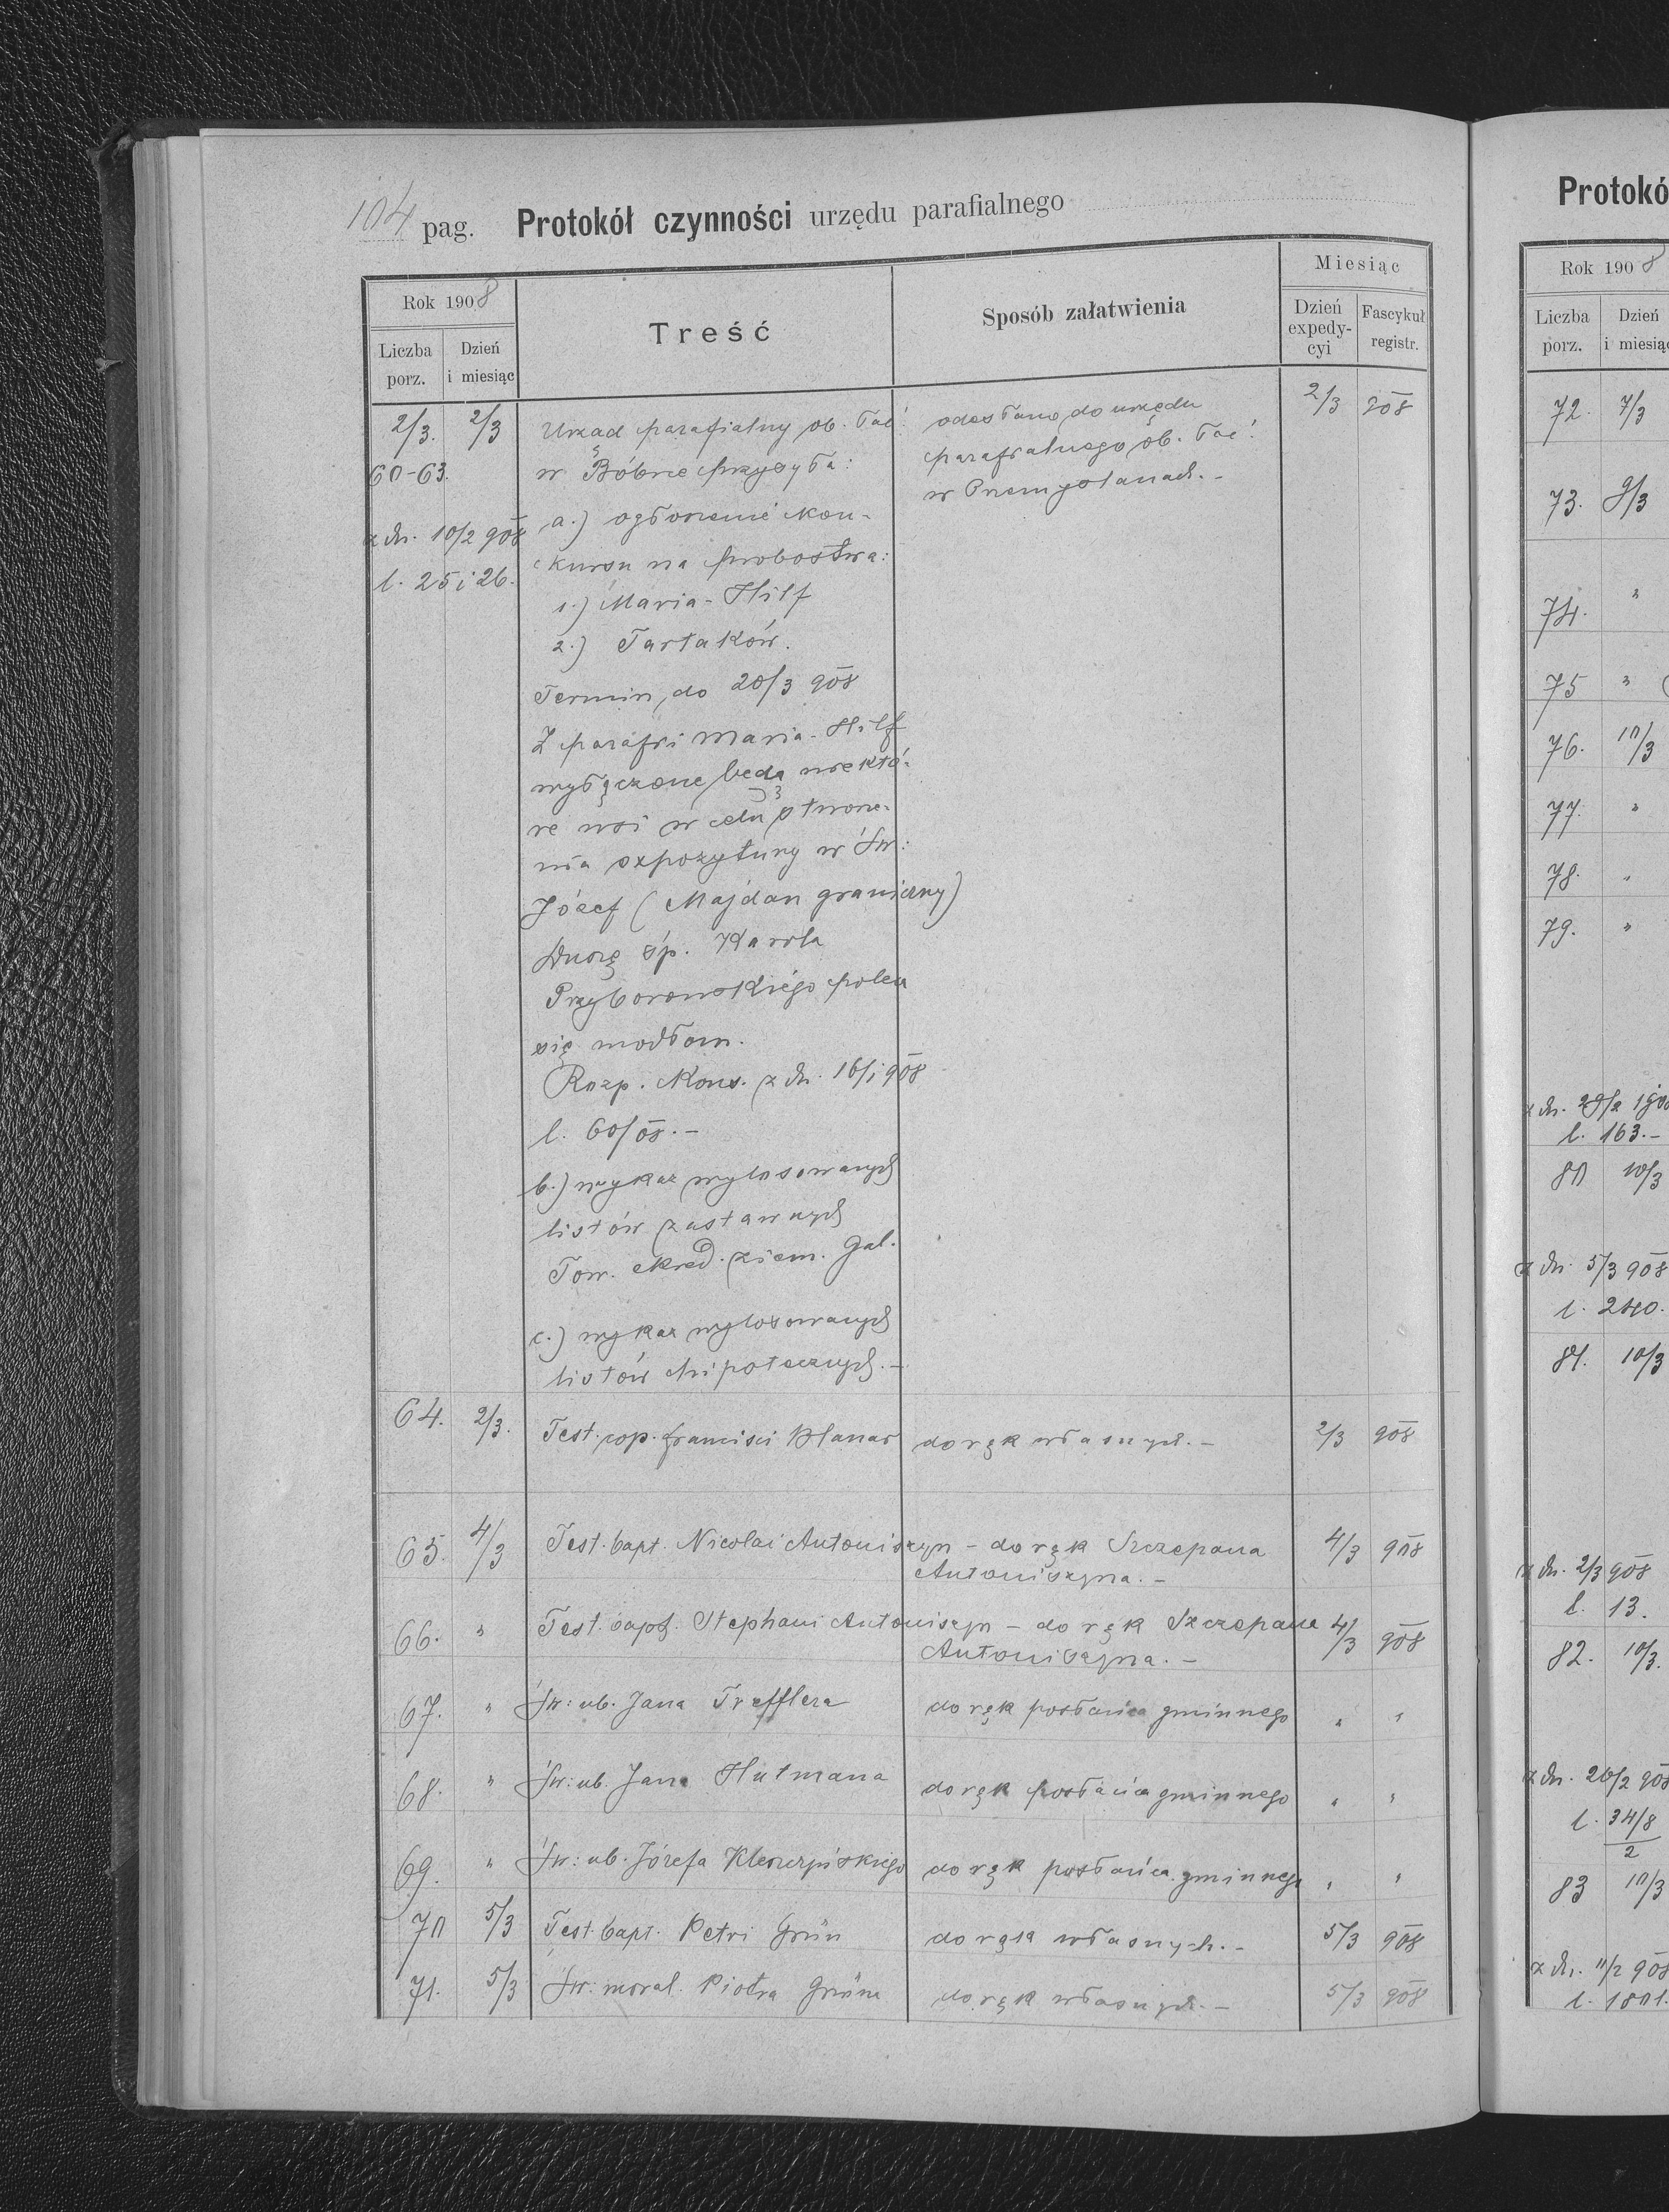 104 pag. Protokół czynności urzędu parafialnego
Rok 1908
Treść
Sposób załatwienia
Miesiąc
Liczba porz.
Dzień i miesiąc
Dzień expedy-cyi
Fascykuł registr.
2/3. 2/3 Urząd parafialny ob. łać: odesłano do urzędu 2/3 908
60-63. w Bóbrce przysyła: parafialnego ob. łać:
w Przemyślanach. -
z dn. 10/2 908 a.) ogłoszenie kon-
l. 25 i 26. kursu na probostwa:
1.) Maria-Hilf
2.) Tartaków.
Termin do 20/3 908
Z parafii Maria-Hilf
wyłączone będą niektó-
re wsi w celu stworze-
nia expozytury w Św:
Józef (Majdan graniczny)
Duszę śp. Karola
Przyborowskiego poleca
się modłom.
Rozp. Kons. z dn. 16/1 908
l. 60/08. -
b.) wykaz wylosowanych
listów zastawnych
Tow. kred. ziem. gal.
c.) wykaz wylosowanych
listów hipotecznych. -
64. 2/3. Test. cop. Francisci do rąk własnych. - 2/3 908
65. 4/3 Test. bapt. Nicolai Antoniszyn - do rąk Szczepana 4/3 908
Antoniszyna. -
66. " Test. bapt. Stephani Antoniszyn - do rąk Szczepana 4/3 908
Antoniszyna. -
67. " Św: ub. Jana Trefflera do rąk posłańca gminnego " "
68. " Św: ub. Jana Hutmana do rąk posłańca gminnego " "
69. " Św: ub. Józefa do rąk posłańca gminnego " "
70 5/3 Test. bapt. Petri Grün do rąk własnych. - 5/3 908
71. 5/3 Św: moral. Piotra Grüna do rąk własnych. - 5/3 908
Protokó
Rok 1908
Liczba porz.
Dzień i miesiąc
72. 7/3
73. 9/3
74. "
75 "
76. 10/3
77. "
78. "
79. "
z dn. 29/2
l. 163. -
80 10/3
z dn. 5/3 908
l. 240.
81. 10/3
z dn. 2/3 908
l. 13.
82. 10/3.
z dn. 26/2 908
l. 34/8
2
83 10/3
z dn. 11/2 908
l. 1801.